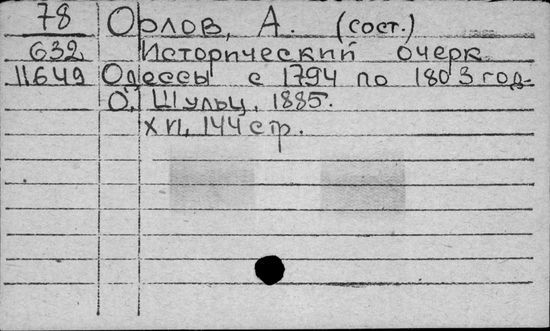 78 Орлов, А. (сост.)
632 Исторический очерк
11649 Одессы с 1794 по 1803 год.
О., Шульц, 1885.
XVI, 144 стр.